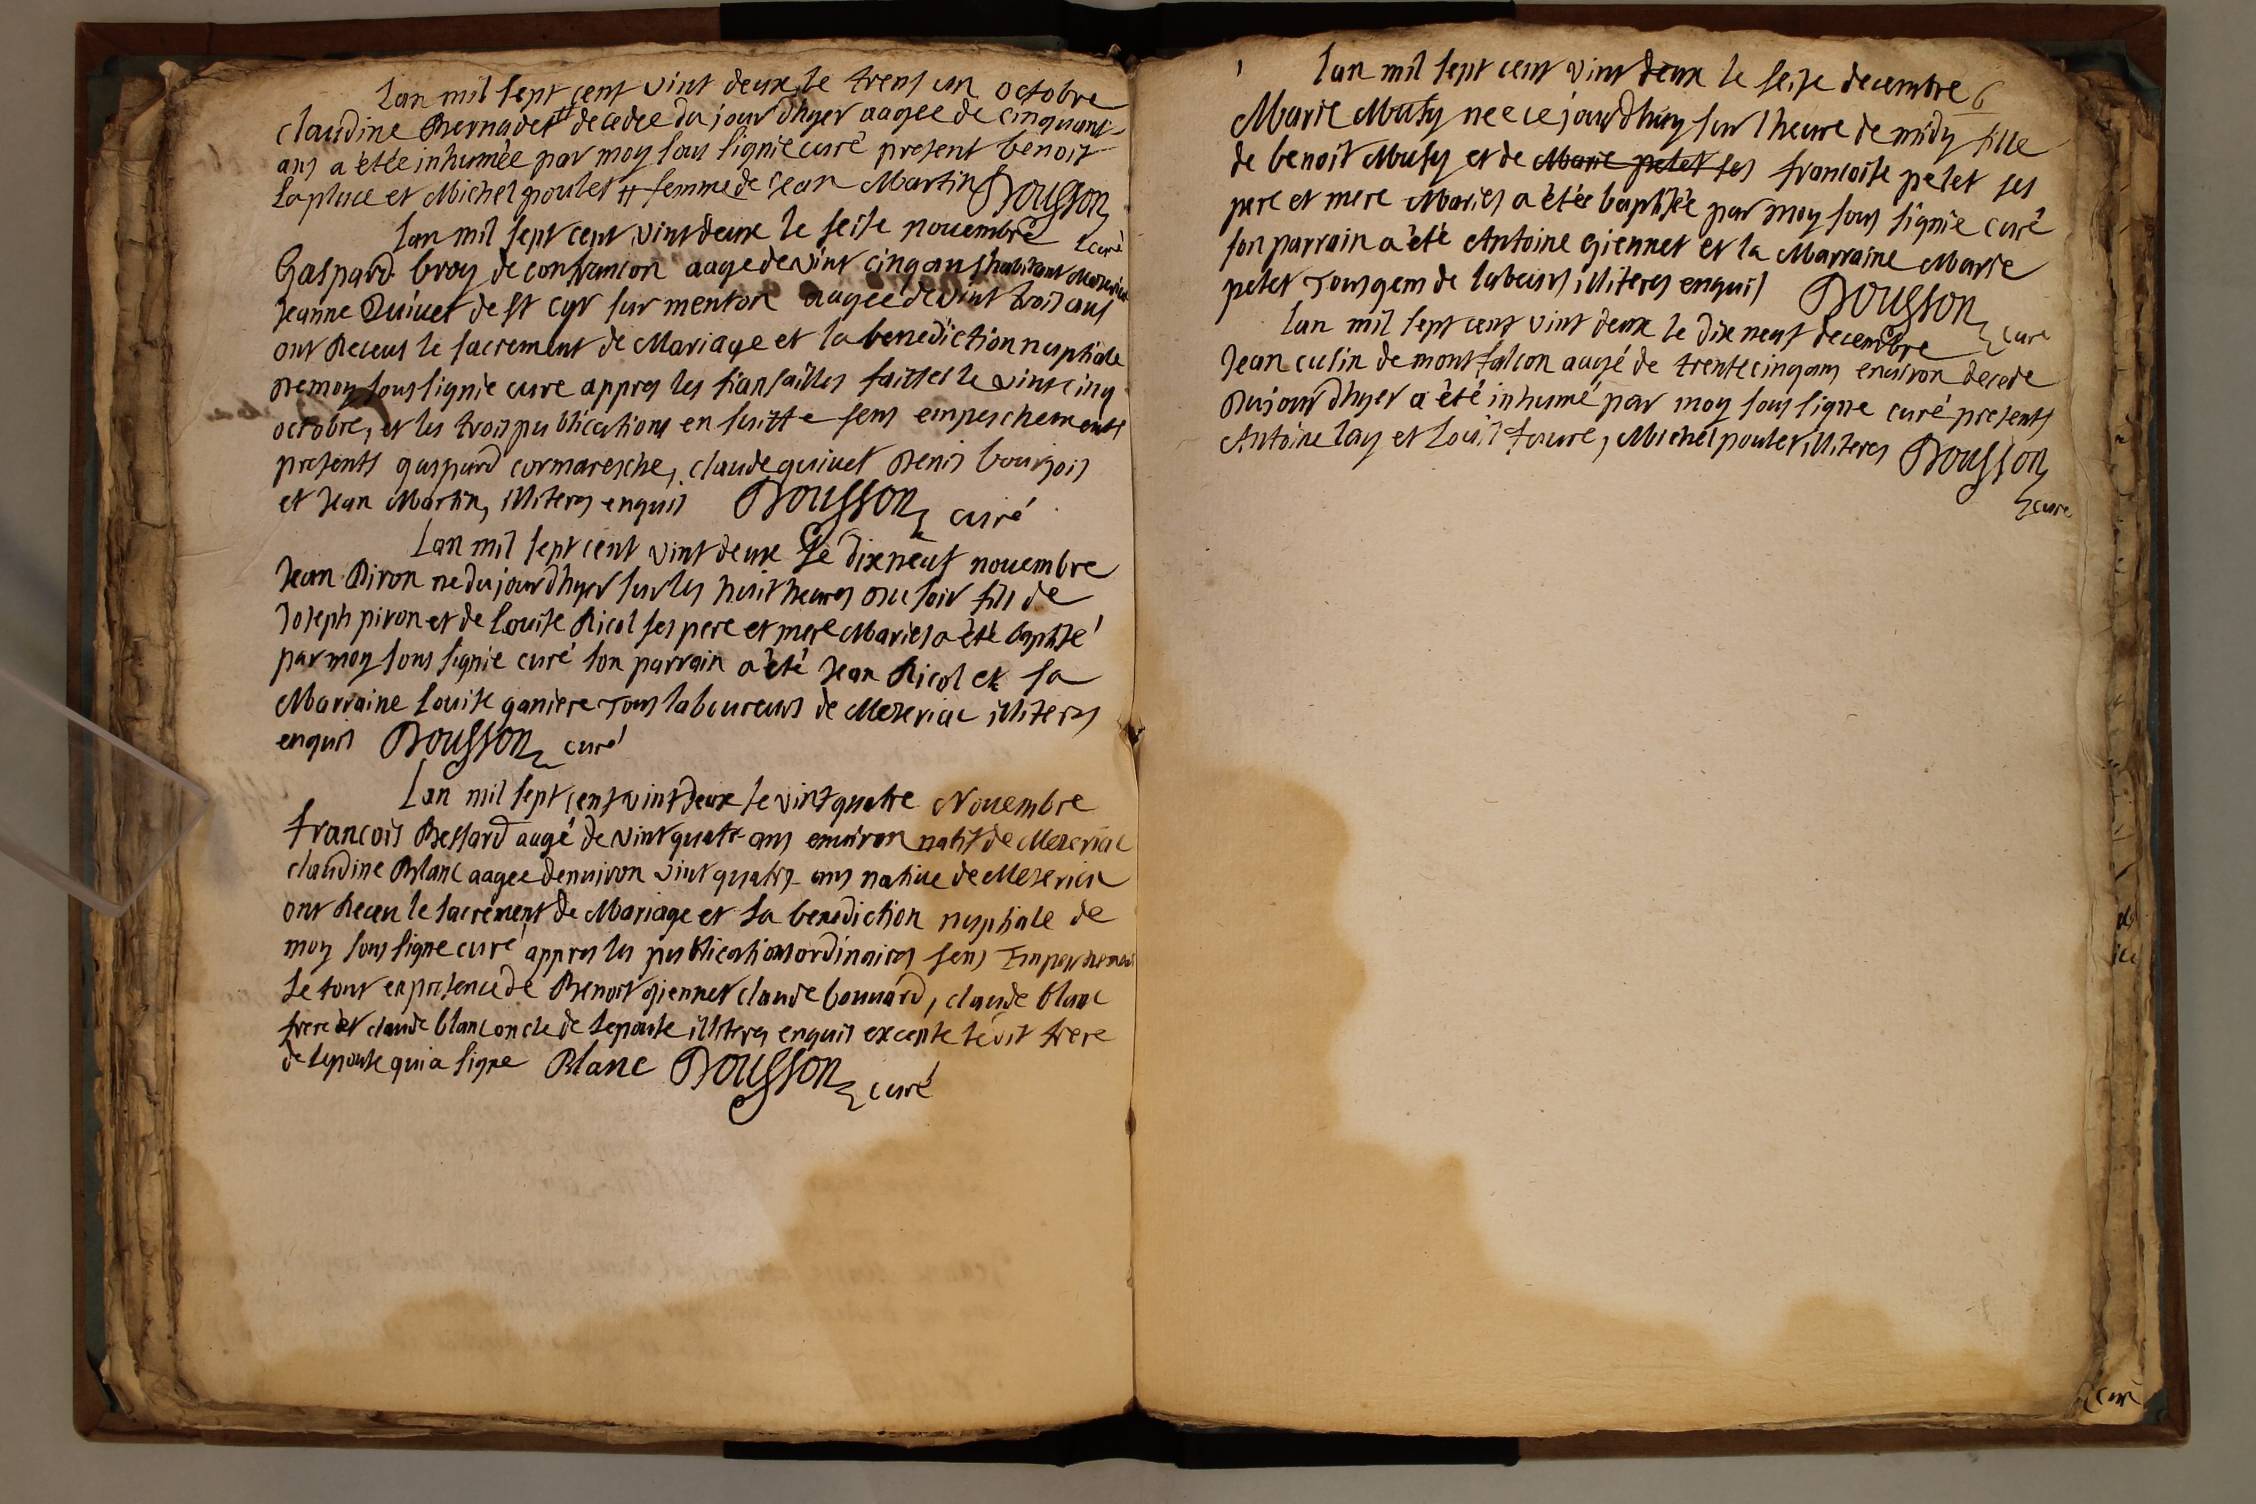 Lan mil sept cent vint deux le trent un octobre
claudine Bernadet # decedee du jourdhyer aagee de cinquant
ans a étée inhumée par moy sous signie curé present benoit
laplace et Michel poulet # femme de Jean Martin Dousson
curé
Lan mil sept cent vint deux le seise nouembre
Gaspard broy de confrancon aagé de vint cinq ans habitant Meseriat
Jeanne Quiuet de st cyr sur menton aagée de vint trois ans
ont Receus le sacrement de Mariage et la benediction nuptiale
De moy sous signie cure appres les fiansailles faittes le vint cinq
octobre, et les trois publications en suitte sens empeschements
presents gaspard cormaresche, claude quiuet Denis bourgois
et Jean Martin, illiteres enquis Dousson curé
Lan mil sept cent vint deux le dix neuf nouembre
Jean Piron ne du jourdhyer sur les huit heures Du soir fils de
Joseph piron et de Louise Ricol ses pere et mere Mariés a été baptisé
par moy sous signie curé son parrain a été Jean Ricol et sa
Marraine Louise ganiere Tous laboureurs de Meseriac illiteres
enquis Dousson curé
Lan mil sept cent vint deux le vint quatre Nouembre
francois Bessard aagé de vint quatr ans enuiron natif de Meseriac
claudine Blanc aagee denuiron vint quatre ans natiue de Meseriac
ont Receu le sacrement de Mariage et la benediction nuptiale de
moy sous signe curé, appres les publications ordinaires sens Empeschement
Le tout en presence de Benoit giennet claude bouuard, claude blanc
frere et claude blanc oncle de lepouse illiteres enquis excepte ledit frere
de lepouse qui a signe Blanc Dousson curé
Lan mil sept cent vint deux le seise decembre 6
Marie Musy nee ce jourdhuy sur lheure de midy fille
de benoit Musy et de Marie pelet ses francoise pelet ses
pere et mere Mariés a étée baptisée par moy sous signie curé
son parrain a été Antoine giennet et la Marraine Marie
pelet Tous gens de labeurs illiteres enquis Dousson
curé
Lan mil sept cent vint deux le dix neuf decembre
Jean culin de montfalcon aagé de trente cinq ans enuiron decede
Dujourdhyer a été inhumé par moy sous signe curé presents
Antoine lay et Louis faure, Michel poulet illiteres Dousson
curé